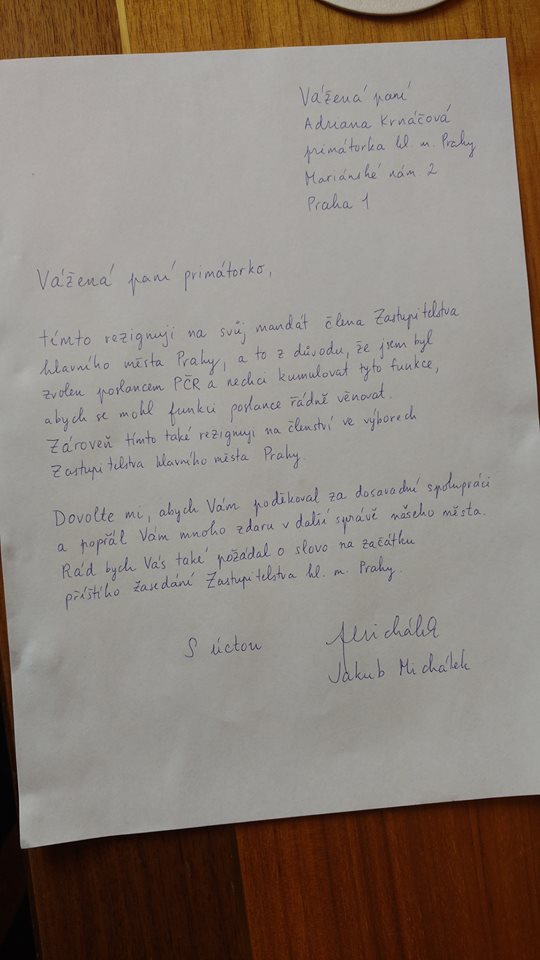 Vážená paní
Adriana Krnáčová
primátorka hl. m. Prahy
Mariánské nám. 2
Praha 1
Vážená paní primátorko,
tímto rezignuji na svůj mandát člena Zastupitelstva
hlavního města Prahy, a to z důvodu, že jsem byl
zvolen poslancem PČR a nechci kumulovat tyto funkce,
abych se mohl funkci poslance řádně věnovat.
Zároveň tímto také rezignuji na členství ve výborech
Zastupitelstva hlavního města Prahy.
Dovolte mi, abych Vám poděkoval za dosavadní spolupráci
a popřál Vám mnoho zdaru v další správě našeho města.
Rád bych Vás také požádal o slovo na začátku
příštího zasedání Zastupitelstva hl. m. Prahy.
S úctou
JMichálek
Jakub Michálek